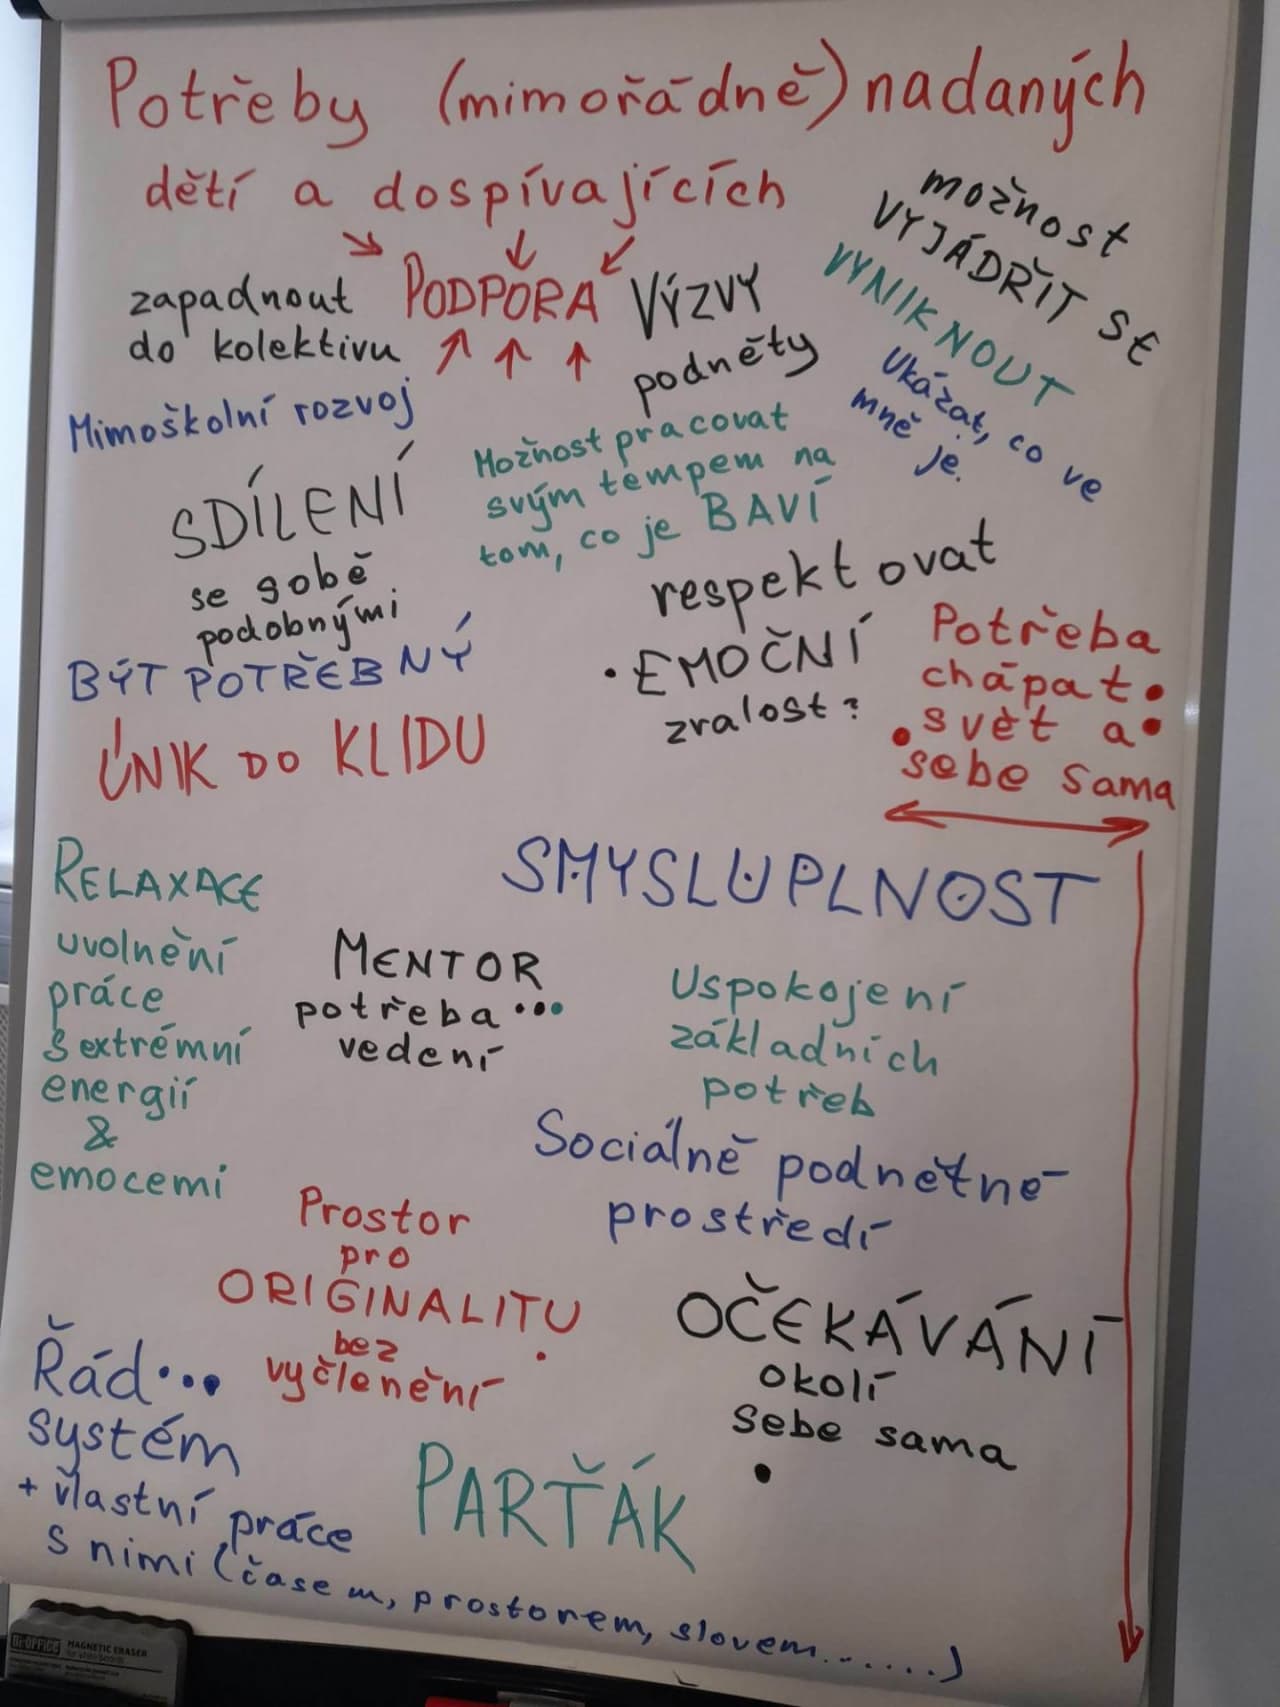 Potřeby (mimořádně) nadaných
dětí a dospívajících
zapadnout
do kolektivu
PODPORA
VÝZVY
podněty
možnost
VYJÁDŘIT SE
VYNIKNOUT
Ukázat, co ve
mně je.
Mimoškolní rozvoj
Možnost pracovat
svým tempem na
tom, co je BAVÍ
SDÍLENÍ
se sobě
podobnými
BÝT POTŘEBNÝ
ÚNIK DO KLIDU
respektovat
• EMOČNÍ
zralost?
Potřeba
chápat •
• svět a •
sebe sama
SMYSLUPLNOST
RELAXACE
uvolnění
práce
s extrémní
energií
&
emocemi
MENTOR
potřeba •••
vedení
Uspokojení
základních
potřeb
Sociálně podnětné
prostředí
Prostor
pro
ORIGINALITU
bez
vyčlenění
OČEKÁVÁNÍ
okolí
sebe sama
•
Řád •••
systém
+ vlastní práce
s nimi (časem, prostorem, slovem.......)
PARŤÁK
Bi-OFFICE
MAGNETIC ERASER